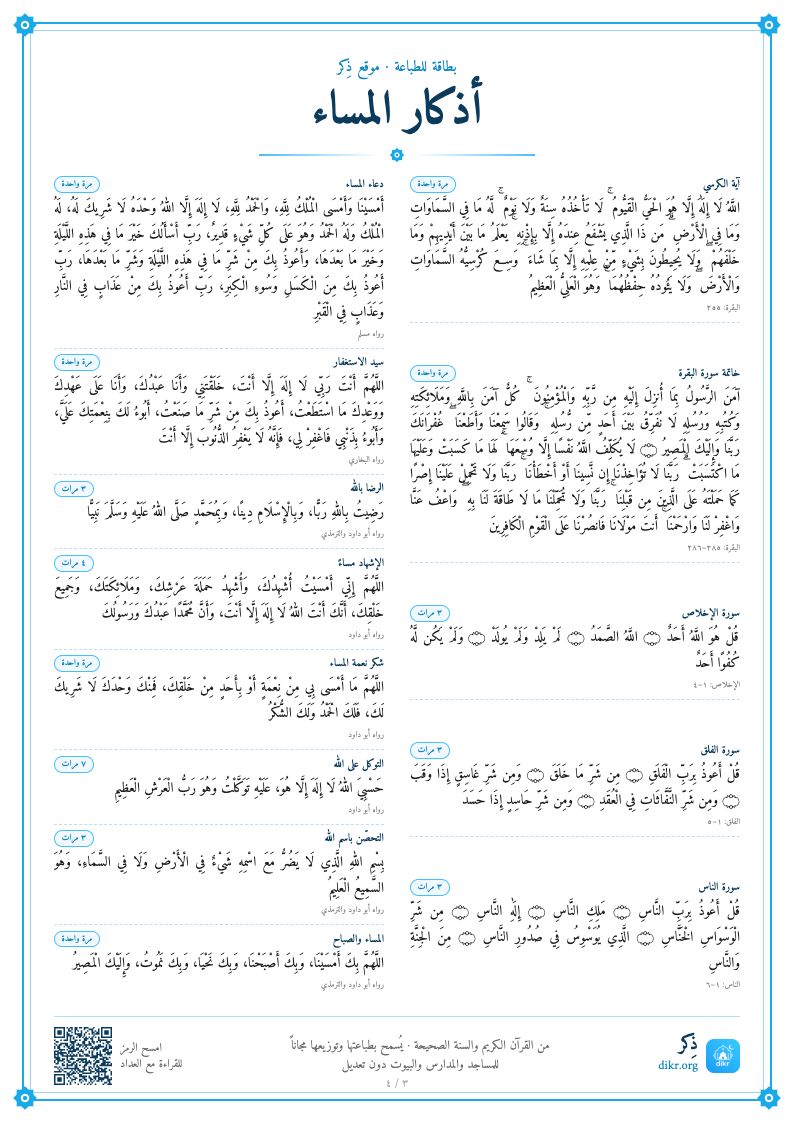 بطاقة للطباعة · موقع ذِكر
أذكار المساء
آية الكرسي
مرة واحدة
اللَّهُ لَا إِلَٰهَ إِلَّا هُوَ الْحَيُّ الْقَيُّومُ ۚ لَا تَأْخُذُهُ سِنَةٌ وَلَا نَوْمٌ ۚ لَّهُ مَا فِي السَّمَاوَاتِ
وَمَا فِي الْأَرْضِ ۗ مَن ذَا الَّذِي يَشْفَعُ عِندَهُ إِلَّا بِإِذْنِهِ ۚ يَعْلَمُ مَا بَيْنَ أَيْدِيهِمْ وَمَا
خَلْفَهُمْ ۖ وَلَا يُحِيطُونَ بِشَيْءٍ مِّنْ عِلْمِهِ إِلَّا بِمَا شَاءَ ۚ وَسِعَ كُرْسِيُّهُ السَّمَاوَاتِ
وَالْأَرْضَ ۖ وَلَا يَئُودُهُ حِفْظُهُمَا ۚ وَهُوَ الْعَلِيُّ الْعَظِيمُ
البقرة: ٢٥٥
خاتمة سورة البقرة
مرة واحدة
آمَنَ الرَّسُولُ بِمَا أُنزِلَ إِلَيْهِ مِن رَّبِّهِ وَالْمُؤْمِنُونَ ۚ كُلٌّ آمَنَ بِاللَّهِ وَمَلَائِكَتِهِ
وَكُتُبِهِ وَرُسُلِهِ لَا نُفَرِّقُ بَيْنَ أَحَدٍ مِّن رُّسُلِهِ ۚ وَقَالُوا سَمِعْنَا وَأَطَعْنَا ۖ غُفْرَانَكَ
رَبَّنَا وَإِلَيْكَ الْمَصِيرُ ۝ لَا يُكَلِّفُ اللَّهُ نَفْسًا إِلَّا وُسْعَهَا ۚ لَهَا مَا كَسَبَتْ وَعَلَيْهَا
مَا اكْتَسَبَتْ ۗ رَبَّنَا لَا تُؤَاخِذْنَا إِن نَّسِينَا أَوْ أَخْطَأْنَا ۚ رَبَّنَا وَلَا تَحْمِلْ عَلَيْنَا إِصْرًا
كَمَا حَمَلْتَهُ عَلَى الَّذِينَ مِن قَبْلِنَا ۚ رَبَّنَا وَلَا تُحَمِّلْنَا مَا لَا طَاقَةَ لَنَا بِهِ ۖ وَاعْفُ عَنَّا
وَاغْفِرْ لَنَا وَارْحَمْنَا ۚ أَنتَ مَوْلَانَا فَانصُرْنَا عَلَى الْقَوْمِ الْكَافِرِينَ
البقرة: ٢٨٥-٢٨٦
سورة الإخلاص
٣ مرات
قُلْ هُوَ اللَّهُ أَحَدٌ ۝ اللَّهُ الصَّمَدُ ۝ لَمْ يَلِدْ وَلَمْ يُولَدْ ۝ وَلَمْ يَكُن لَّهُ
كُفُوًا أَحَدٌ
الإخلاص: ١-٤
سورة الفلق
٣ مرات
قُلْ أَعُوذُ بِرَبِّ الْفَلَقِ ۝ مِن شَرِّ مَا خَلَقَ ۝ وَمِن شَرِّ غَاسِقٍ إِذَا وَقَبَ
۝ وَمِن شَرِّ النَّفَّاثَاتِ فِي الْعُقَدِ ۝ وَمِن شَرِّ حَاسِدٍ إِذَا حَسَدَ
الفلق: ١-٥
سورة الناس
٣ مرات
قُلْ أَعُوذُ بِرَبِّ النَّاسِ ۝ مَلِكِ النَّاسِ ۝ إِلَٰهِ النَّاسِ ۝ مِن شَرِّ
الْوَسْوَاسِ الْخَنَّاسِ ۝ الَّذِي يُوَسْوِسُ فِي صُدُورِ النَّاسِ ۝ مِنَ الْجِنَّةِ
وَالنَّاسِ
الناس: ١-٦
دعاء المساء
مرة واحدة
أَمْسَيْنَا وَأَمْسَى الْمُلْكُ لِلَّهِ، وَالْحَمْدُ لِلَّهِ، لَا إِلَهَ إِلَّا اللهُ وَحْدَهُ لَا شَرِيكَ لَهُ، لَهُ
الْمُلْكُ وَلَهُ الْحَمْدُ وَهُوَ عَلَى كُلِّ شَيْءٍ قَدِيرٌ، رَبِّ أَسْأَلُكَ خَيْرَ مَا فِي هَذِهِ اللَّيْلَةِ
وَخَيْرَ مَا بَعْدَهَا، وَأَعُوذُ بِكَ مِنْ شَرِّ مَا فِي هَذِهِ اللَّيْلَةِ وَشَرِّ مَا بَعْدَهَا، رَبِّ
أَعُوذُ بِكَ مِنَ الْكَسَلِ وَسُوءِ الْكِبَرِ، رَبِّ أَعُوذُ بِكَ مِنْ عَذَابٍ فِي النَّارِ
وَعَذَابٍ فِي الْقَبْرِ
رواه مسلم
سيد الاستغفار
مرة واحدة
اللَّهُمَّ أَنْتَ رَبِّي لَا إِلَهَ إِلَّا أَنْتَ، خَلَقْتَنِي وَأَنَا عَبْدُكَ، وَأَنَا عَلَى عَهْدِكَ
وَوَعْدِكَ مَا اسْتَطَعْتُ، أَعُوذُ بِكَ مِنْ شَرِّ مَا صَنَعْتُ، أَبُوءُ لَكَ بِنِعْمَتِكَ عَلَيَّ،
وَأَبُوءُ بِذَنْبِي فَاغْفِرْ لِي، فَإِنَّهُ لَا يَغْفِرُ الذُّنُوبَ إِلَّا أَنْتَ
رواه البخاري
الرضا بالله
٣ مرات
رَضِيتُ بِاللهِ رَبًّا، وَبِالْإِسْلَامِ دِينًا، وَبِمُحَمَّدٍ صَلَّى اللهُ عَلَيْهِ وَسَلَّمَ نَبِيًّا
رواه أبو داود والترمذي
الإشهاد مساءً
٤ مرات
اللَّهُمَّ إِنِّي أَمْسَيْتُ أُشْهِدُكَ، وَأُشْهِدُ حَمَلَةَ عَرْشِكَ، وَمَلَائِكَتَكَ، وَجَمِيعَ
خَلْقِكَ، أَنَّكَ أَنْتَ اللهُ لَا إِلَهَ إِلَّا أَنْتَ، وَأَنَّ مُحَمَّدًا عَبْدُكَ وَرَسُولُكَ
رواه أبو داود
شكر نعمة المساء
مرة واحدة
اللَّهُمَّ مَا أَمْسَى بِي مِنْ نِعْمَةٍ أَوْ بِأَحَدٍ مِنْ خَلْقِكَ، فَمِنْكَ وَحْدَكَ لَا شَرِيكَ
لَكَ، فَلَكَ الْحَمْدُ وَلَكَ الشُّكْرُ
رواه أبو داود
التوكل على الله
٧ مرات
حَسْبِيَ اللهُ لَا إِلَهَ إِلَّا هُوَ، عَلَيْهِ تَوَكَّلْتُ وَهُوَ رَبُّ الْعَرْشِ الْعَظِيمِ
رواه أبو داود
التحصّن باسم الله
٣ مرات
بِسْمِ اللهِ الَّذِي لَا يَضُرُّ مَعَ اسْمِهِ شَيْءٌ فِي الْأَرْضِ وَلَا فِي السَّمَاءِ، وَهُوَ
السَّمِيعُ الْعَلِيمُ
رواه أبو داود والترمذي
المساء والصباح
مرة واحدة
اللَّهُمَّ بِكَ أَمْسَيْنَا، وَبِكَ أَصْبَحْنَا، وَبِكَ نَحْيَا، وَبِكَ نَمُوتُ، وَإِلَيْكَ الْمَصِيرُ
رواه أبو داود والترمذي
dikr
ذِكر
dikr.org
من القرآن الكريم والسنة الصحيحة · يُسمح بطباعتها وتوزيعها مجاناً
للمساجد والمدارس والبيوت دون تعديل
٣ / ٤
امسح الرمز
للقراءة مع العداد